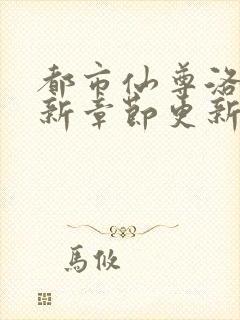 都市仙尊洛
新章節更新
馬攸